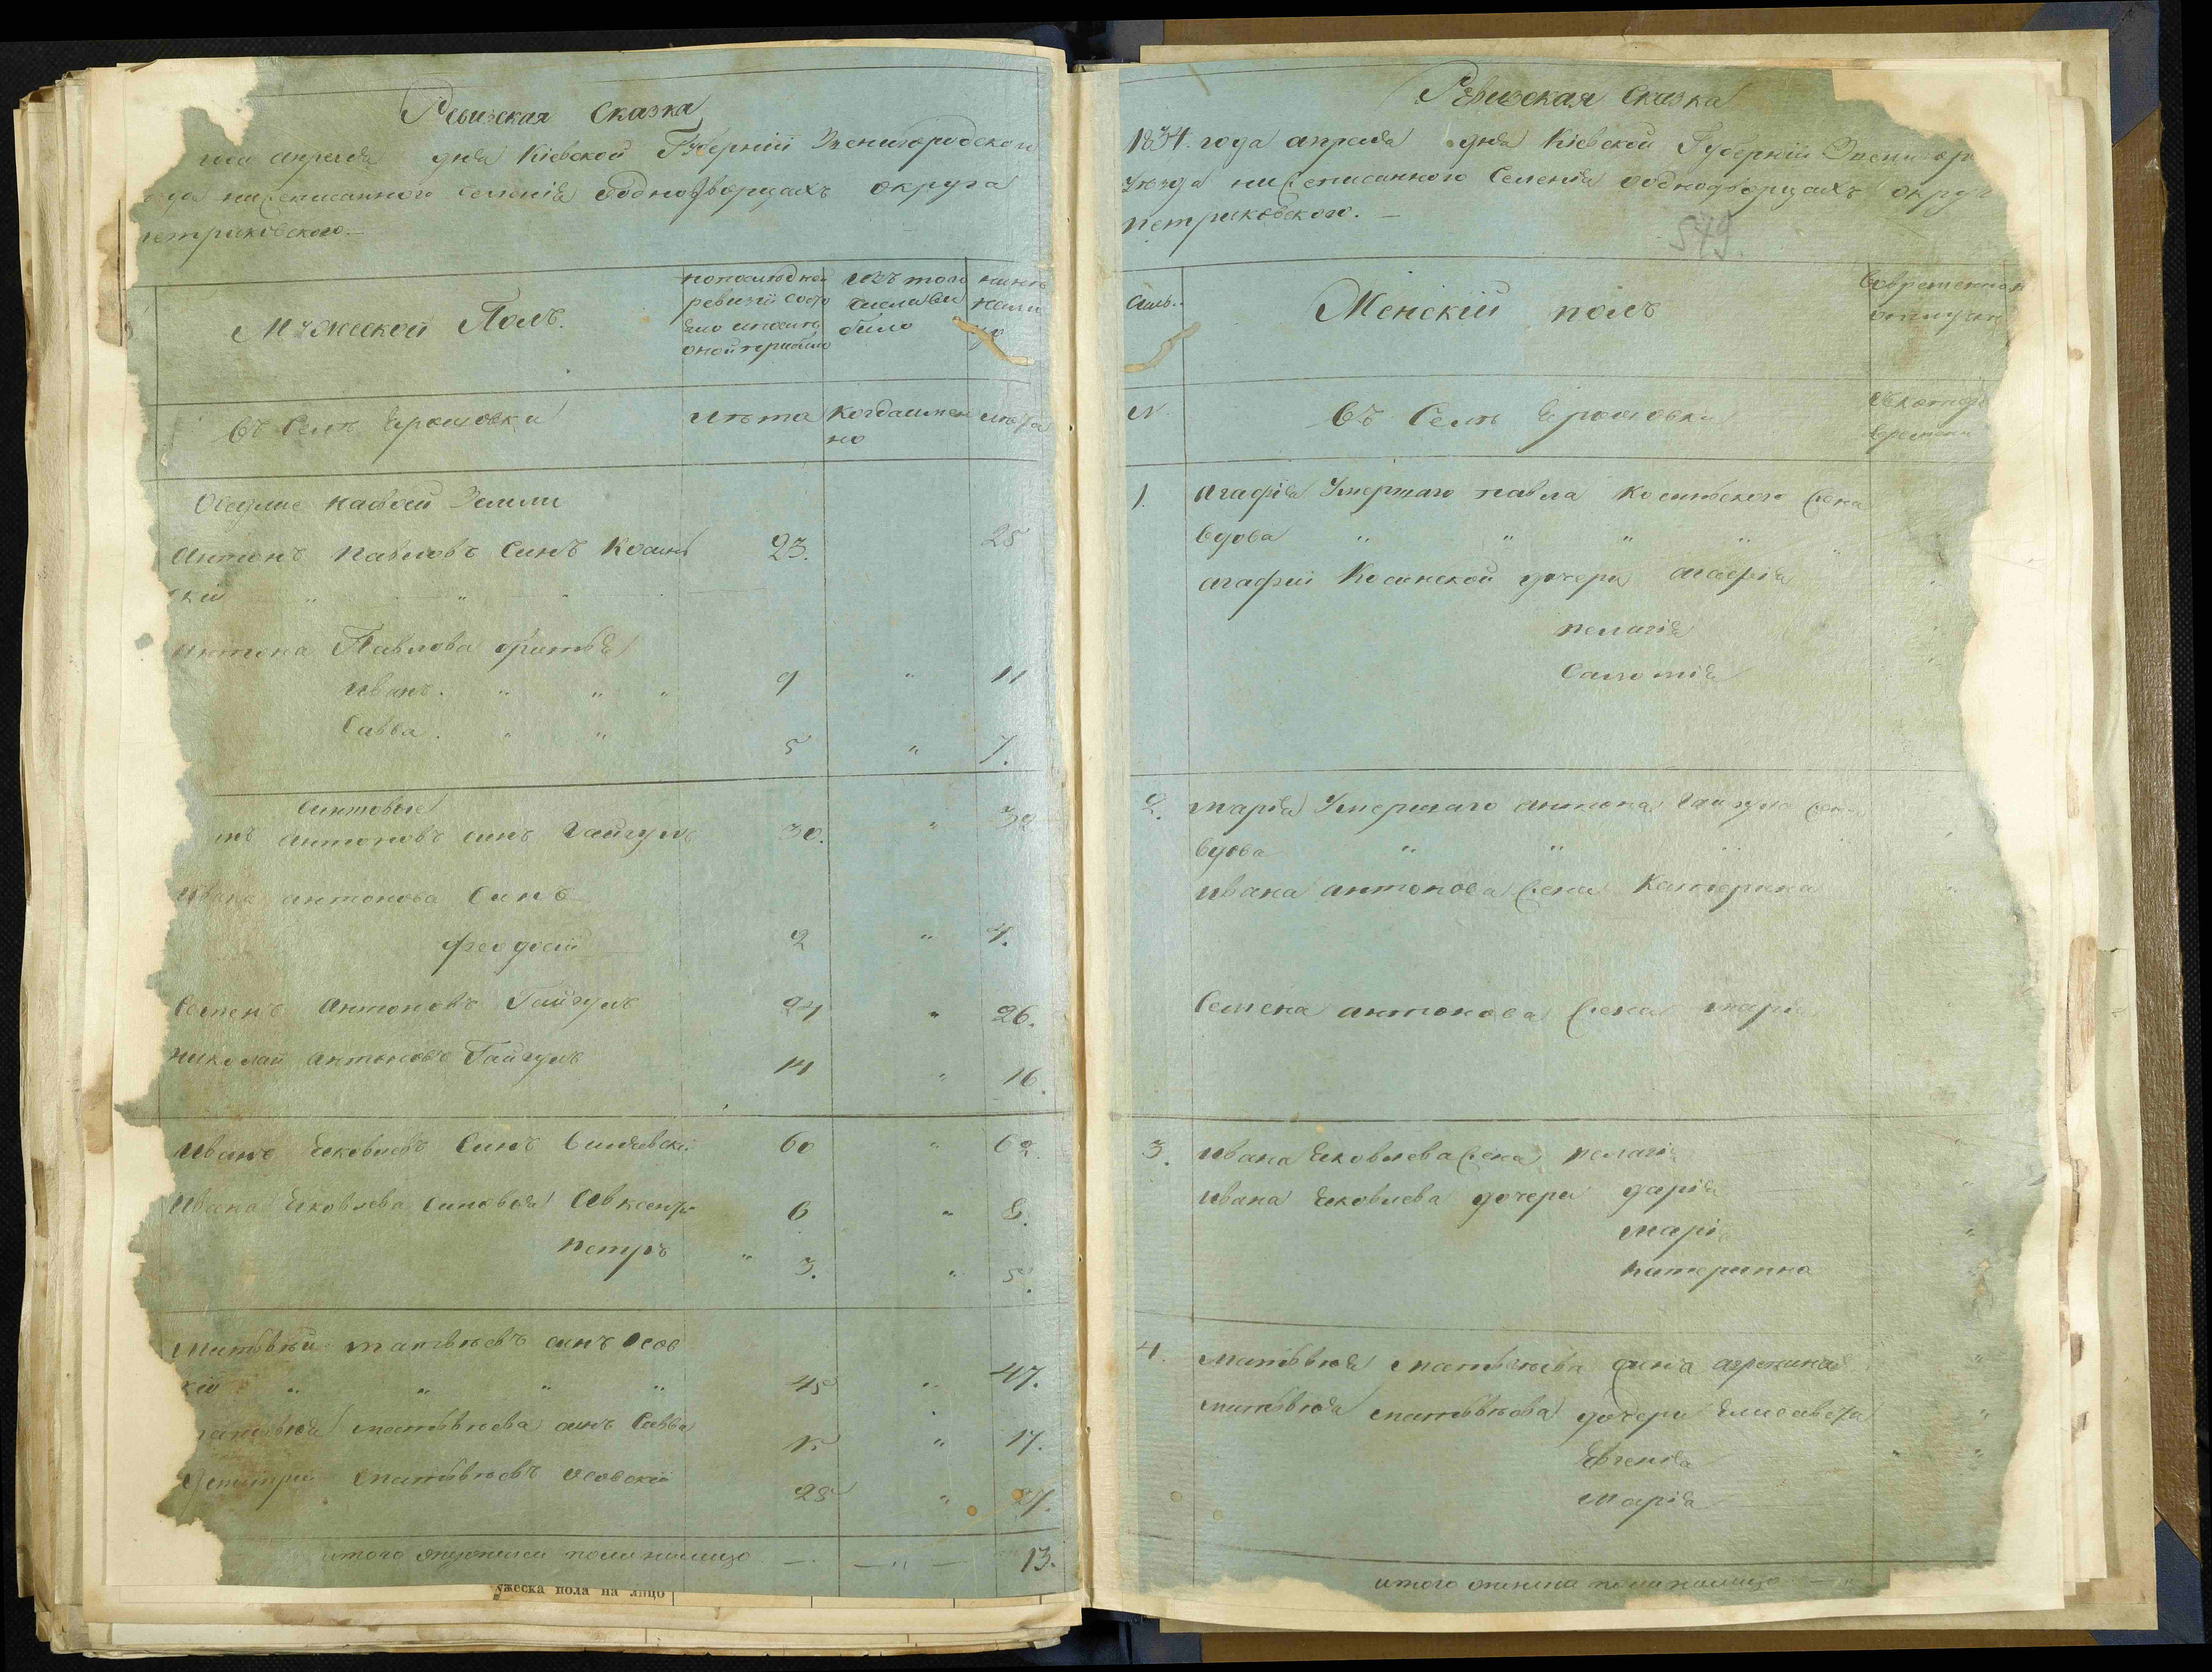 Ревизская Сказка
года апреля дня Кіевской Губерніи Звенигородской
нижеписанного Селенія однодворцахъ округа
петриковского.
Мужеской Полъ.
попоследней
ревизіи состо
яло и после
оной прибило
Изъ того
числа ви
било
ныне
нали
цо
Въ Селе Ерошовки
лета
Когда имен
но
лета
Оседлие на своей Земли
Антонъ Павловъ Синъ Косин 23. 25
скій " " "
Антона Павлова братья
Иванъ. " " " 9 " 11
Савва. " " 5 " 7.
антоновъ синъ Гайгулъ 30. " 32
Ивана антонова Синъ
Феодосій 2 " 4.
Семенъ Антоновъ Гайгулъ 24 " 26.
Николай Антоновъ Гайгулъ 14 " 16.
Иванъ Яковлевъ Синъ 60 " 62.
Ивана Яковлева Синовья 6 " 8.
Петръ " 3. " 5.
Матвей матвеевъ синъ Осов
кій " " " " 45 " 47.
матвея матвеева синъ Савва 15 " 17.
Дмитрій Матвеевъ Осовскій 25 " 27.
итого пола налицо — — " — 13.
ужеска пола на лицо
Ревизская Сказка
1834. года апреля дня Кіевской Губерніи Звенигор
уезда нижеписанного Селенія однодворцахъ округ
петриковского. —
549.
Женскій полъ
Во временной
отлучки
N.
Въ Селе Ерошовки
Скотор
времени
1. Агафія Умершаго павла Косинского жена
вдова " " " " " "
агафіи Косинской дочери агафія "
пелагія "
Саломія "
2. марія Умершаго антона Гайгула жена
вдова " " "
Ивана антонова жена Катерина "
Семена антонова жена марія
3. Ивана Яковлева жена пелагія "
Ивана Яковлева дочери дарія "
Марія "
Катерина
4. матвея матвеева жена агрепина "
матвея матвеева дочери Елисавета "
Евгенія " "
Марія
итого женска пола налицо —